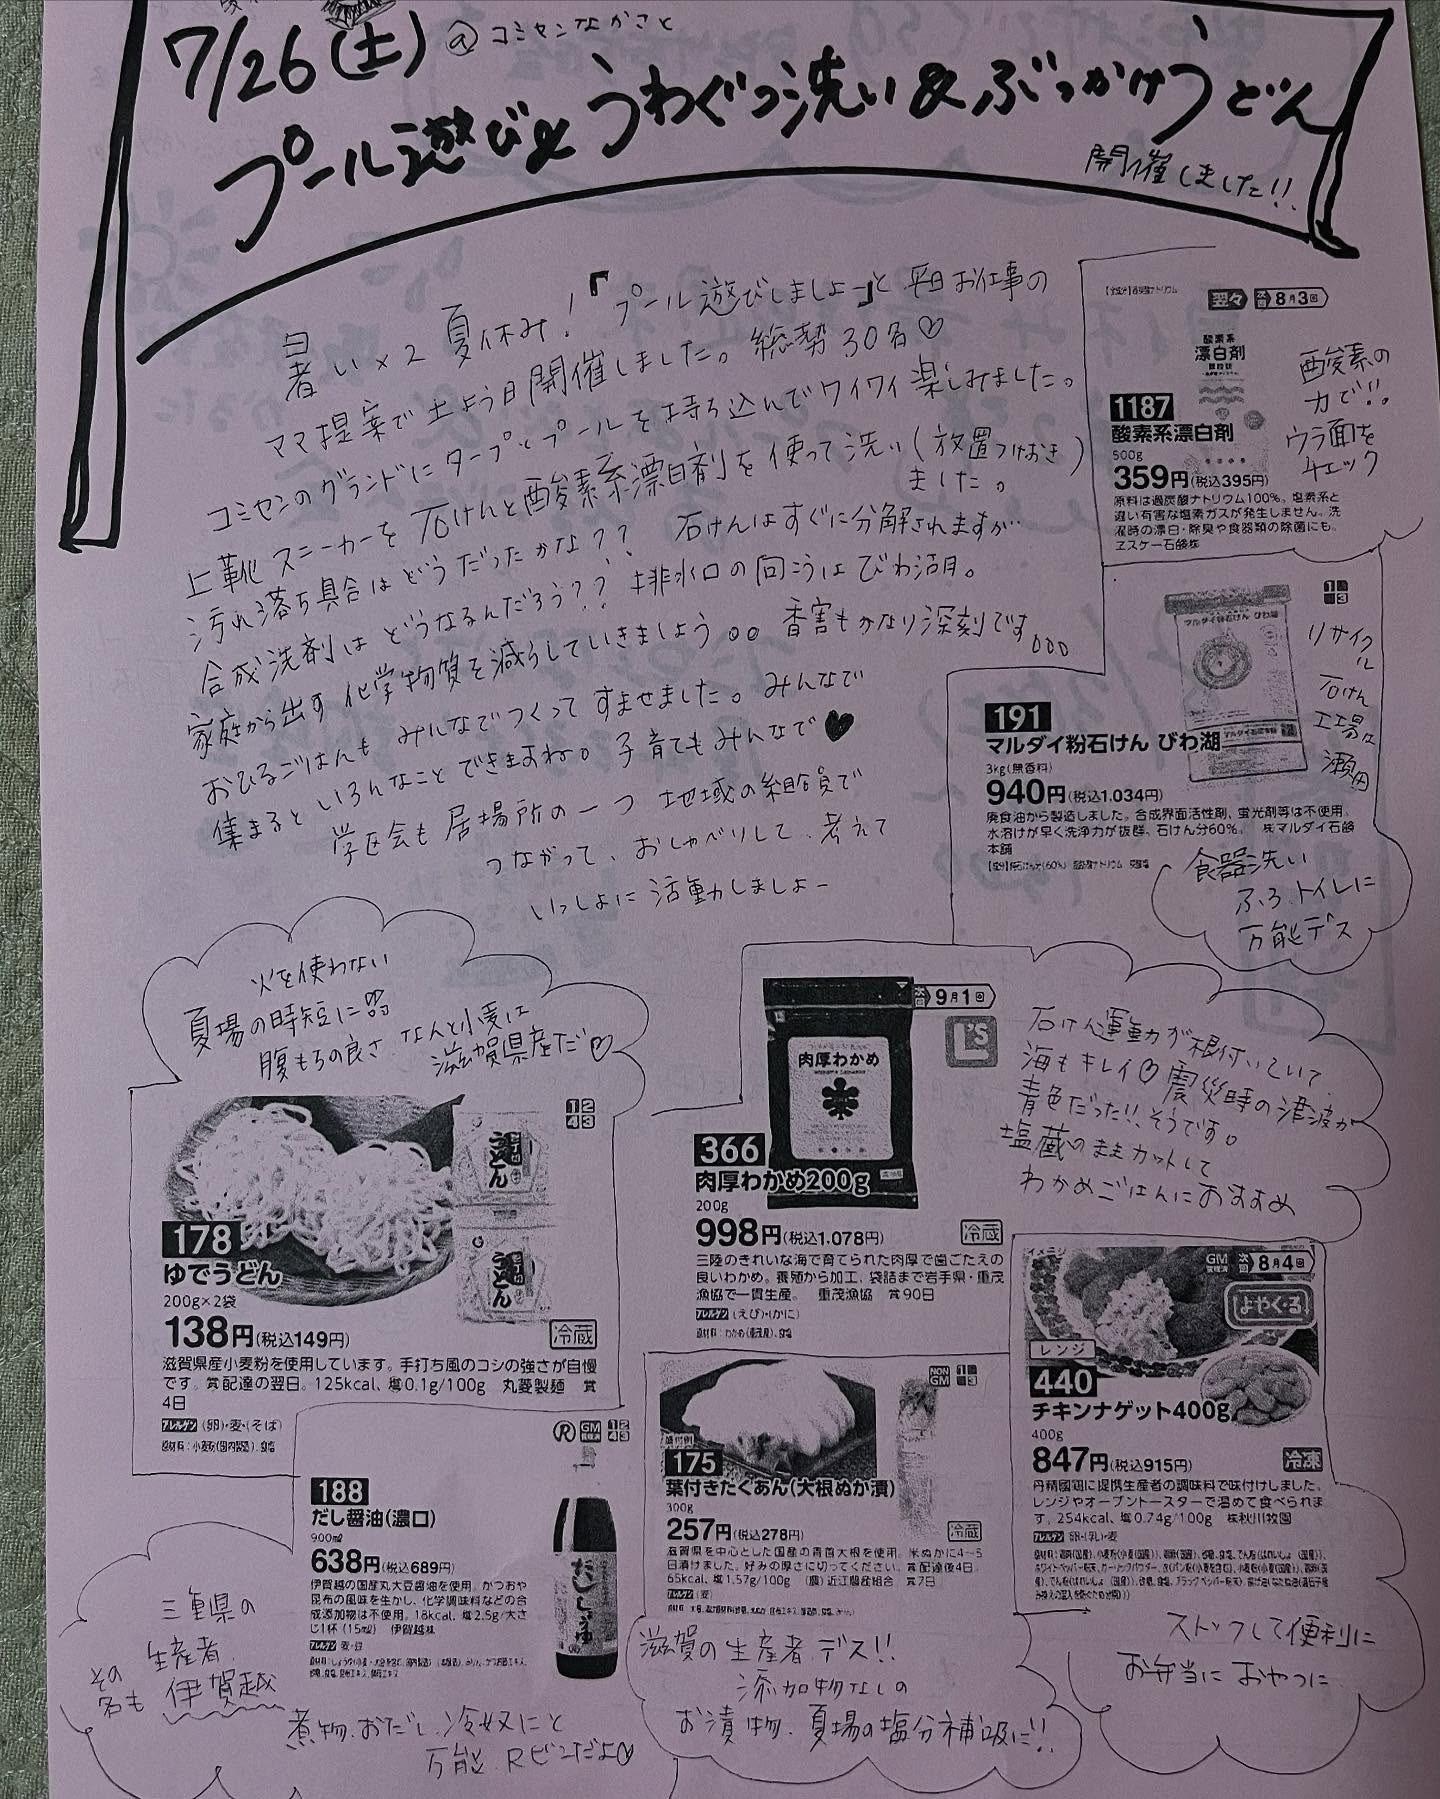 7/26(土) @コミセンなかさと
プール遊び&うわぐつ洗い&ぶっかけうどん
開催しました!!
暑い×2 夏休み!「プール遊びしましょー」と平日お仕事の
ママ提案で土よう日開催しました。総勢30名♡
コミセンのグランドにタープとプールを持ち込んでワイワイ楽しみました。
上靴スニーカーを石けんと酸素系漂白剤を使って洗い(放置つけおき)
ました。
汚れ落ち具合はどうだったかな?? 石けんはすぐに分解されますが…
合成洗剤はどうなるんだろう?? 排水口の向こうはびわ湖。
家庭から出す化学物質を減らしていきましょう。。香害もかなり深刻です。。。
おひるごはんもみんなでつくってすませました。みんなで
集まるといろんなことできますね。子育てもみんなで♥
学区会も居場所の一つ 地域の組合員で
つながって、おしゃべりして、考えて
いっしょに活動しましょー
翌々 次回 8月3回
酸素系
漂白剤
1187
酸素系漂白剤
500g
359円(税込395円)
原料は過炭酸ナトリウム100%。塩素系と
違い有害な塩素ガスが発生しません。洗
濯時の漂白・除臭や食器類の除菌にも。
ヱスケー石鹸㈱
酸素の
力で!!
ウラ面を
チェック
マルダイ粉石けん びわ湖
191
マルダイ粉石けん びわ湖
3kg(無香料)
940円(税込1,034円)
廃食油から製造しました。合成界面活性剤、蛍光剤等は不使用。
水溶けが早く洗浄力が抜群、石けん分60%。 ㈱マルダイ石鹸
本舗
1 3
リサイクル
石けん
工場は
瀬田
食器洗い
ふろ.トイレに
万能デス
火を使わない
夏場の時短に
腹もちの良さ、なんと小麦は
滋賀県産だ♡
1 2
4 3
178
ゆでうどん
200g×2袋
138円(税込149円)
冷蔵
滋賀県産小麦粉を使用しています。手打ち風のコシの強さが自慢
です。賞配達の翌日。125kcal、塩0.1g/100g 丸菱製麺 賞
4日
アレルゲン (卵)・麦・(そば)
原材料:小麦粉(国内製造)、食塩
次回 9月1回
L'S
肉厚わかめ
366
肉厚わかめ200g
200g
998円(税込1,078円)
冷蔵
三陸のきれいな海で育てられた肉厚で歯ごたえの
良いわかめ。養殖から加工、袋詰まで岩手県・重茂
漁協で一貫生産。 重茂漁協 賞90日
アレルゲン (えび)・(かに)
石けん運動が根付いていて
海もキレイ♡震災時の津波が
青色だった!!そうです。
塩蔵のままカットして
わかめごはんにおすすめ
NON GM
175
葉付きたくあん(大根ぬか漬)
300g
257円(税込278円)
冷蔵
滋賀県を中心とした国産の青首大根を使用。米ぬかに4〜5
日漬けました。好みの厚さに切ってください。 賞配達後4日。
65kcal、塩1.57g/100g (農)近江農産組合 賞7日
アレルゲン (麦)
滋賀の生産者デス!!
添加物なしの
お漬物、夏場の塩分補給に!!
イメージ
GM 次回 8月4回
よやく・る
レンジ
440
チキンナゲット400g
400g
847円(税込915円)
冷凍
丹精國鶏に提携生産者の調味料で味付けしました。
レンジやオーブントースターで温めて食べられま
す。254kcal、塩0.74g/100g ㈱秋川牧園
アレルゲン 卵・(乳)・麦
ストックして便利に
お弁当に おやつに
R GM 1 2 4 3
188
だし醤油(濃口)
900ml
638円(税込689円)
伊賀越の国産丸大豆醤油を使用。かつおや
昆布の風味を生かし、化学調味料などの合
成添加物は不使用。18kcal、塩2.5g/大さ
じ1杯(15ml) 伊賀越㈱
アレルゲン 麦・豆
だししょうゆ
三重県の
生産者.
その
名も 伊賀越
煮物、おだし、冷奴にと
万能.Rビンだよ♡